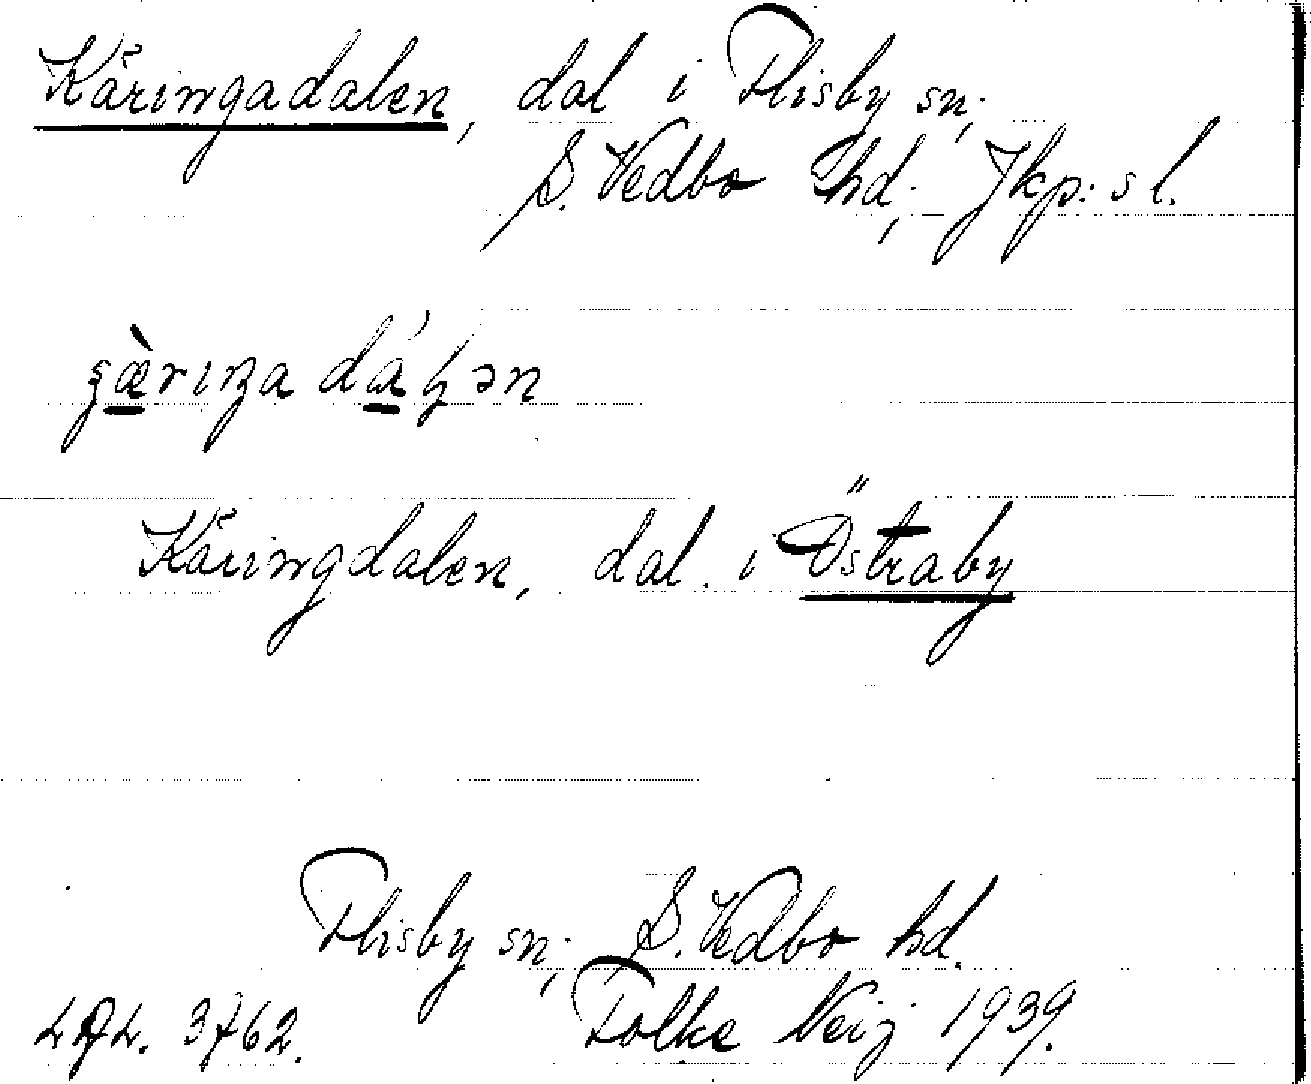 Käringadalen, dal i Flisby sn;
S. Vedbo hd; Jkp:s l.
Käringdalen, dal i Östraby
Flisby sn; S. Vedbo hd.
3762. Folke Neij 1939.